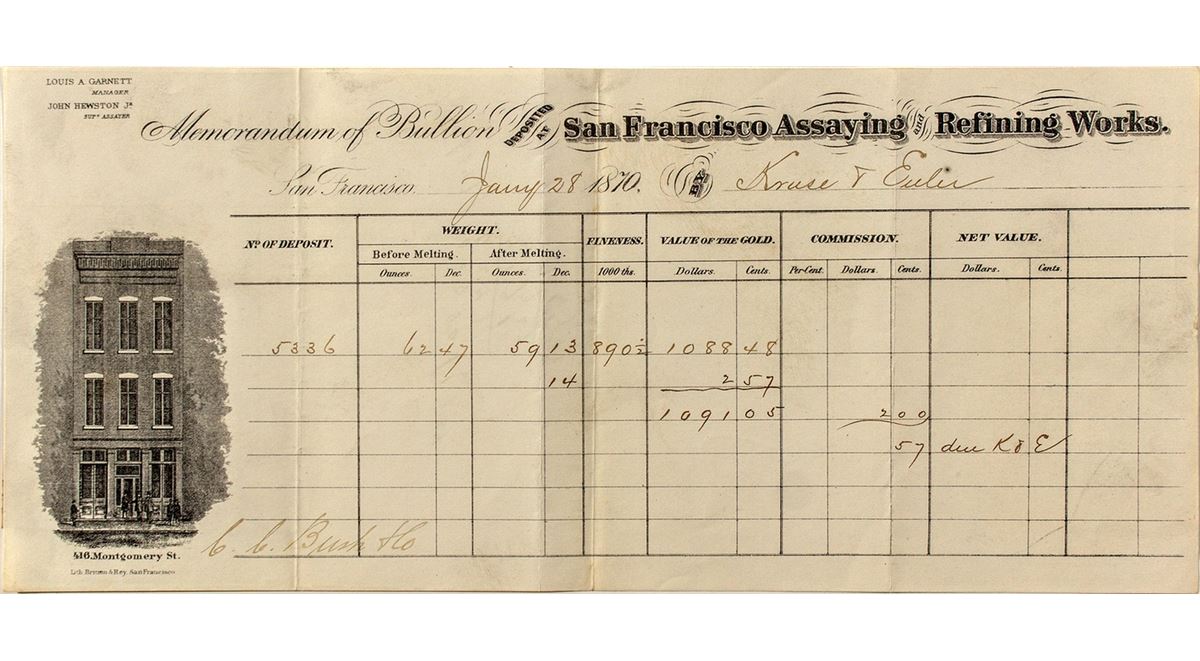 LOUIS A. GARNETT
MANAGER
JOHN HEWSTON Jr.
SUPt. ASSAYER
Memorandum of Bullion DEPOSITED AT San Francisco Assaying and Refining Works.
San Francisco. Jany 28 1870. BY Kruse & Euler
No. OF DEPOSIT. WEIGHT. FINENESS. VALUE OF THE GOLD. COMMISSION. NET VALUE.
Before Melting. After Melting.
Ounces. Dec. Ounces. Dec. 1000 ths. Dollars. Cents. Per-Cent. Dollars. Cents. Dollars. Cents.
5336 62 47 59 13 890½ 1088 48
14 2 57
1091 05 2 00
57 due K & E
C. C. Bush & Co
416. Montgomery St.
Lith. Britton & Rey. San Francisco